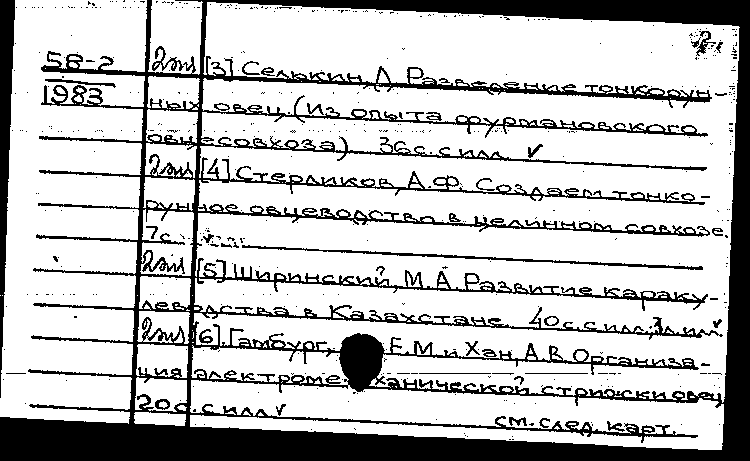 2.
58-2 2экз [3] Селькин, Л. Разведение тонкорун-
1983 ных овец (Из опыта фурмановского
овцесовхоза) 36с. с илл. ✓
2экз [4] Стердиков, А.Ф. Создаем тонко-
рунное овцеводство в целинном совхозе.
7с.
2экз [5] Ширинский, М.А. Развитие караку-
леводства в Казахстане. 40с. с илл.
2экз [6]. Гамбург, Е.М. и Хан, А.В. Организа-
ция электромеханической стрижки овец
20с. с илл ✓
см. след. карт.